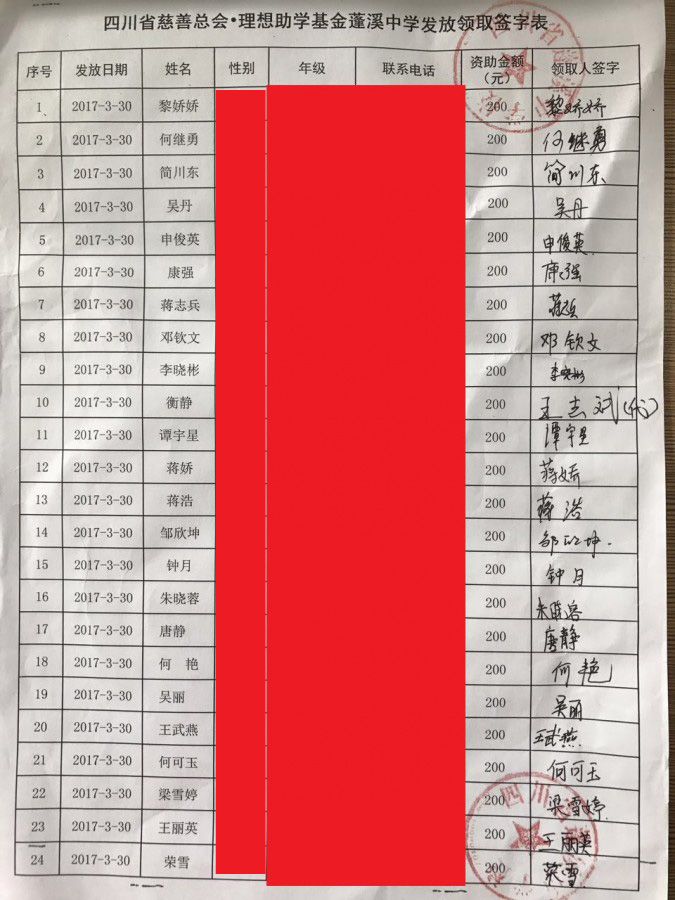 四川省慈善总会•理想助学基金蓬溪中学发放领取签字表
序号 发放日期 姓名 性别 年级 联系电话 资助金额（元） 领取人签字
1 2017-3-30 黎娇娇 200 黎娇娇
2 2017-3-30 何继勇 200 何继勇
3 2017-3-30 简川东 200 简川东
4 2017-3-30 吴丹 200 吴丹
5 2017-3-30 申俊英 200 申俊英
6 2017-3-30 康强 200 康强
7 2017-3-30 蒋志兵 200
8 2017-3-30 邓钦文 200 邓钦文
9 2017-3-30 李晓彬 200 李晓彬
10 2017-3-30 衡静 200 王志斌(代)
11 2017-3-30 谭宇星 200 谭宇星
12 2017-3-30 蒋娇 200 蒋娇
13 2017-3-30 蒋浩 200 蒋浩
14 2017-3-30 邹欣坤 200 邹欣坤
15 2017-3-30 钟月 200 钟月
16 2017-3-30 朱晓蓉 200 朱晓蓉
17 2017-3-30 唐静 200 唐静
18 2017-3-30 何 艳 200 何艳
19 2017-3-30 吴丽 200 吴丽
20 2017-3-30 王武燕 200 王武燕
21 2017-3-30 何可玉 200 何可玉
22 2017-3-30 梁雪婷 200 梁雪婷
23 2017-3-30 王丽英 200 王丽英
24 2017-3-30 荣雪 200 荣雪